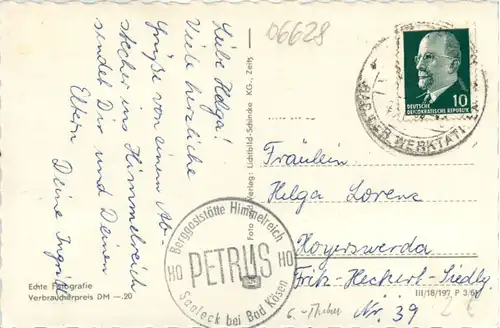 06628
Liebe Helga!
Viele herzliche
Grüße von einem Ab-
stecher ins Himmelreich
sendet Dir und Deinen
Eltern Deine Ingrid
Echte Fotografie
Verbraucherpreis DM —.20
Foto und Verlag: Lichtbild-Schincke KG., Zeitz
DEUTSCHE
DEMOKRATISCHE REPUBLIK
10
DER WERKTÄTI
Fräulein
Helga Lorenz
Hoyerswerda
Fritz-Heckert-Siedlg.
Nr. 39
Berggaststätte Himmelreich
HO PETRUS HO
Saaleck bei Bad Kösen
III/18/197 P 3/61
2 €